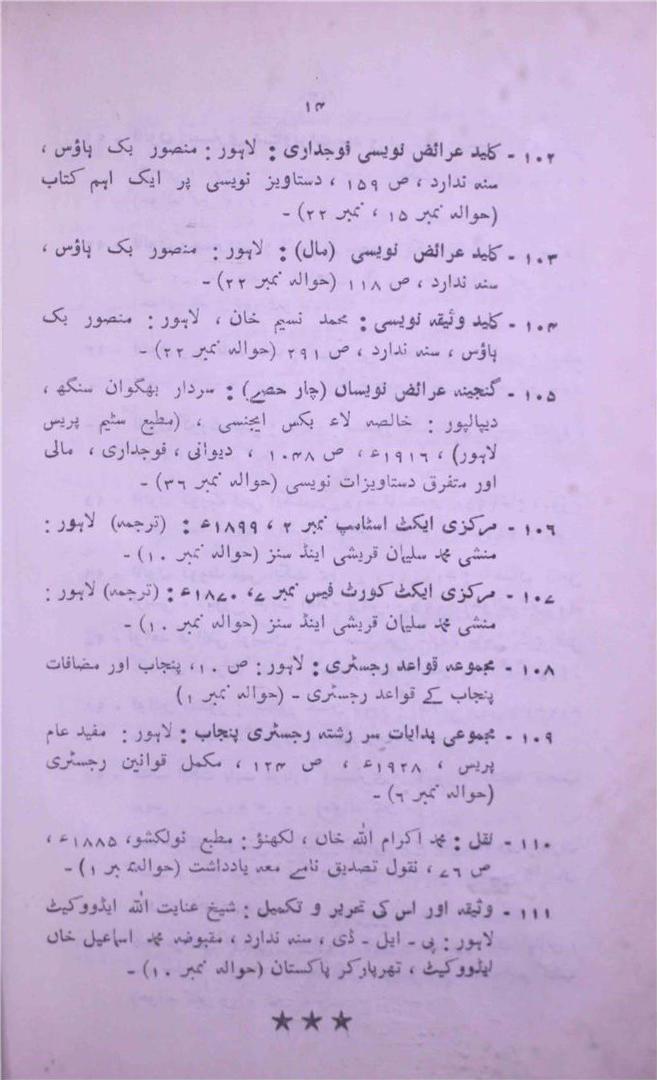 ۱۴
۱۰۲ - کلید عرائض نویسی فوجداری : لاہور : منصور بک ہاؤس ،
سنہ ندارد ، ص ۱۵۹ ، دستاویز نویسی پر ایک اہم کتاب
(حوالہ نمبر ۱۵ ، نمبر ۲۲) -
۱۰۳ - کلید عرائض نویسی (مال) : لاہور : منصور بک ہاؤس ،
سنہ ندارد ، ص ۱۱۸ (حوالہ نمبر ۲۲) -
۱۰۴ - کلید وثیقہ نویسی : محمد نسیم خان ، لاہور : منصور بک
ہاؤس ، سنہ ندارد ، ص ۲۹۱ (حوالہ نمبر ۲۲) -
۱۰۵ - گنجینہ عرائض نویساں (چار حصے) : سردار بھگوان سنگھ ،
دیپالپور : خالصہ لاء بکس ایجنسی ، (مطبع سٹیم پریس
لاہور) ، ۱۹۱۶ء ، ص ۱۰۴۸ ، دیوانی ، فوجداری ، مالی
اور متفرق دستاویزات نویسی (حوالہ نمبر ۳۶) -
۱۰۶ - مرکزی ایکٹ اسٹامپ نمبر ۲ ، ۱۸۹۹ء : (ترجمہ) لاہور :
منشی محمد سلیمان قریشی اینڈ سنز (حوالہ نمبر ۱۰) -
۱۰۷ - مرکزی ایکٹ کورٹ فیس نمبر ۷، ۱۸۷۰ء : (ترجمہ) لاہور :
منشی محمد سلیمان قریشی اینڈ سنز (حوالہ نمبر ۱۰) -
۱۰۸ - مجموعہ قواعد رجسٹری : لاہور : ص ۱۰، پنجاب اور مضافات
پنجاب کے قواعد رجسٹری - (حوالہ نمبر ۱)
۱۰۹ - مجموعی ہدایات سر رشتہ رجسٹری پنجاب : لاہور : مفید عام
پریس ، ۱۹۲۸ء ، ص ۱۲۴ ، مکمل قوانین رجسٹری
(حوالہ نمبر ۶) -
۱۱۰ - نقل : محمد اکرام اللہ خاں ، لکھنؤ : مطبع نولکشو، ۱۸۸۵ء ،
ص ۷۶ ، نقول تصدیق نامے معہ یادداشت (حوالہ نمبر ۱) -
۱۱۱ - وثیقہ اور اس کی تحریر و تکمیل : شیخ عنایت اللہ ایڈووکیٹ
لاہور : پی - ایل - ڈی ، سنہ ندارد ، مقبوضہ محمد اسماعیل خاں
ایڈووکیٹ ، تھرپارکر پاکستان (حوالہ نمبر ۱۰) -
★★★